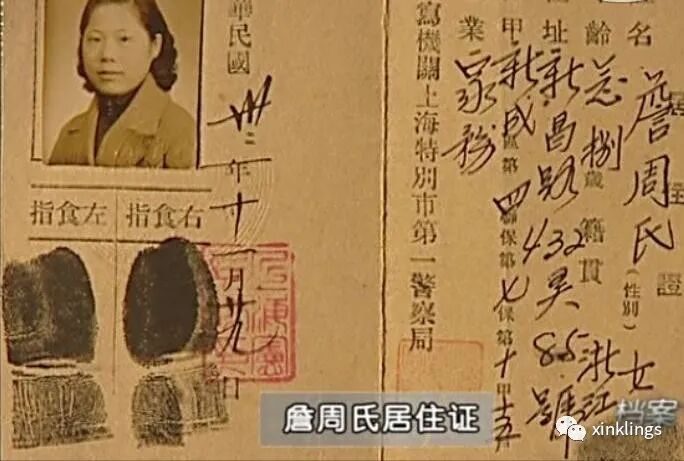 居住證
名 詹周氏 (性別) 女
齡 捌歲 籍貫 浙江
址 新昌路432弄85號
甲 新成區第四聯保第七保第十甲
業 家務
寫機關上海特別市第一警察局
華民國卅二年十一月廿九日
指食左
指食右
詹周氏居住证
档案
xinklings